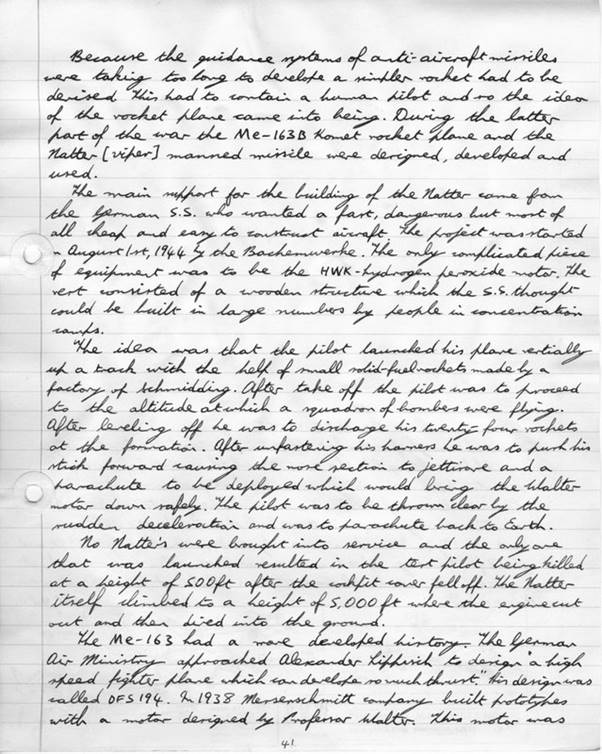 Because the guidance systems of anti-aircraft missiles
were taking too long to develope a simpler rocket had to be
devised. This had to contain a human pilot and so the idea
of the rocket plane came into being. During the latter
part of the war the Me-163B Komet rocket plane and the
Natter [viper] manned missile were designed, developed and
used.
The main support for the building of the Natter came from
the German S.S. who wanted a fast, dangerous but most of
all cheap and easy to construct aircraft. The project was started
in August 1st, 1944 by the Bachemwerke. The only complicated piece
of equipment was to be the HWK-hydrogen peroxide motor. The
rest consisted of a wooden structure which the S.S. thought
could be built in large numbers by people in concentration
camps.
The idea was that the pilot launched his plane vertially
up a track with the help of small solid-fuel rockets made by a
factory of Schmidding. After take off the pilot was to proceed
to the altitude at which a squadron of bombers were flying.
After leveling off he was to discharge his twenty-four rockets
at the formation. After unfastening his harness he was to push his
stick forward causing the nose section to jettisone and a
parachute to be deployed which would bring the Walter
motor down safely. The pilot was to be thrown clear by the
sudden deceleration and was to parachute back to Earth.
No Natte's were brought into service and the only one
that was launched resulted in the test pilot being killed
at a height of 500ft after the cockpit cover fell off. The Natter
itself climbed to a height of 5,000ft where the engine cut
out and then dived into the ground.
The Me-163 had a more developed history. The German
Air Ministry approached Alexander Lippisch to design "a high
speed fighter plane which can develope so much thrust." His design was
called DFS194. In 1938 Messenschmitt company built prototypes
with a motor designed by Professor Walter. This motor was
41.